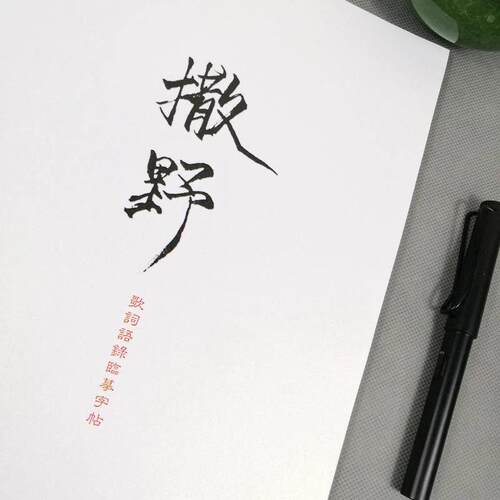 撒野
歌詞語錄臨摹字帖